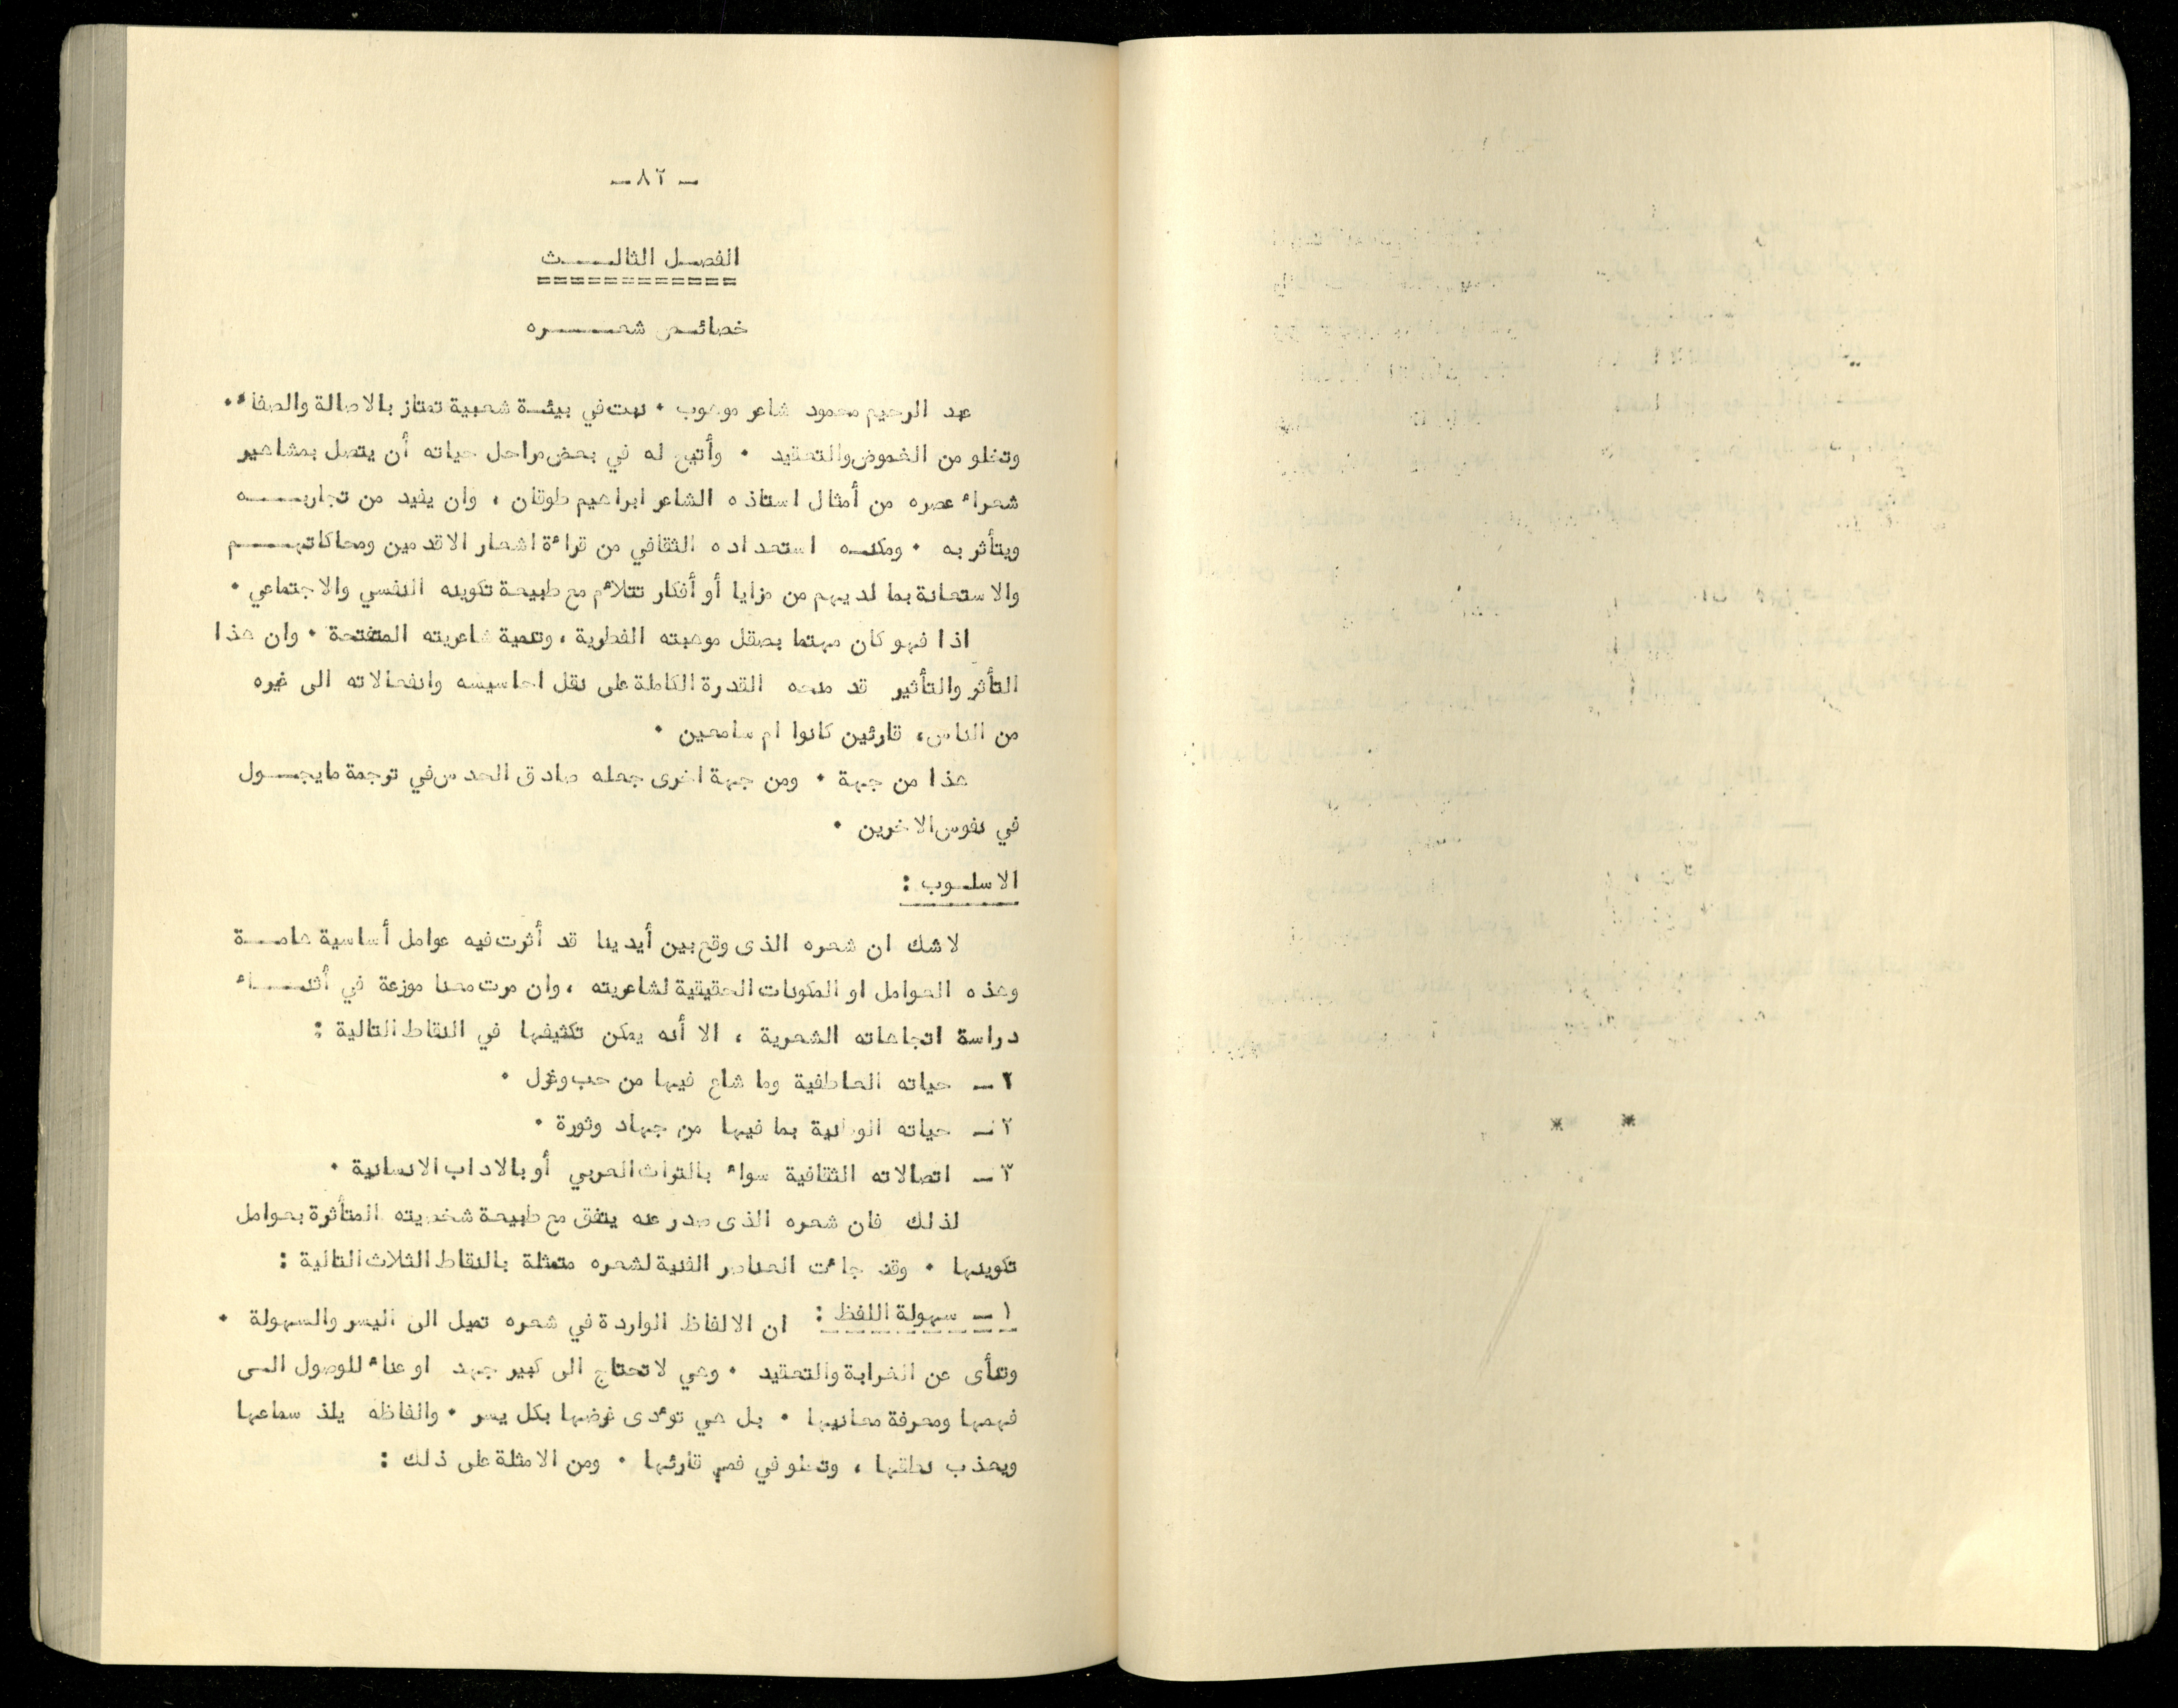 - ٨٢ -
الفصل الثالث
خصائص شعره
عبد الرحيم محمود شاعر موهوب ٠ نبت في بيئة شعبية تمتاز بالاصالة والصفاء ٠
وتخلو من الغموض والتعقيد ٠ وأتيح له في بعض مراحل حياته أن يتصل بمشاهير
شعراء عصره من أمثال استاذه الشاعر ابراهيم طوقان ، وان يفيد من تجاربه
ويتأثر به ٠ ومكنه استعداده الثقافي من قراءة اشعار الاقدمين ومحاكاتهم
والاستعانة بما لديهم من مزايا أو أفكار تتلاءم مع طبيعة تكوينه النفسي والاجتماعي ٠
اذا فهو كان مهتما بصقل موهبته الفطرية ، وتنمية شاعريته المتفتحة ٠ وان هذا
التأثر والتأثير قد منحه القدرة الكاملة على نقل احاسيسه وانفعالاته الى غيره
من الناس ، قارئين كانوا ام سامعين ٠
هذا من جهة ٠ ومن جهة اخرى جعله صادق الحدس في ترجمة مايجول
في نفوس الاخرين ٠
الاسلوب :
لاشك ان شعره الذى وقع بين أيدينا قد أثرت فيه عوامل أساسية هامة
وهذه العوامل او المكونات الحقيقية لشاعريته ، وان مرت معنا موزعة في أثناء
دراسة اتجاهاته الشعرية ، الا أنه يمكن تكثيفها في النقاط التالية :
٢ - حياته العاطفية وما شاع فيها من حب وغزل ٠
٢ - حياته الوطنية بما فيها من جهاد وثورة ٠
٣ - اتصالاته الثقافية سواء بالتراث العربي أو بالاداب الانسانية ٠
لذلك فان شعره الذى صدر عنه يتفق مع طبيعة شخصيته المتأثرة بعوامل
تكوينها ٠ وقد جاءت العناصر الفنية لشعره متمثلة بالنقاط الثلاث التالية :
١ - سهولة اللفظ : ان الالفاظ الواردة في شعره تميل الى اليسر والسهولة ٠
وتنأى عن الغرابة والتعقيد ٠ وهي لاتحتاج الى كبير جهد او عناء للوصول الى
فهمها ومعرفة معانيها ٠ بل هي توءدى غرضها بكل يسر ٠ والفاظه يلذ سماعها
ويعذب نطقها ، وتحلو في فم قارئها ٠ ومن الامثلة على ذلك :
* *